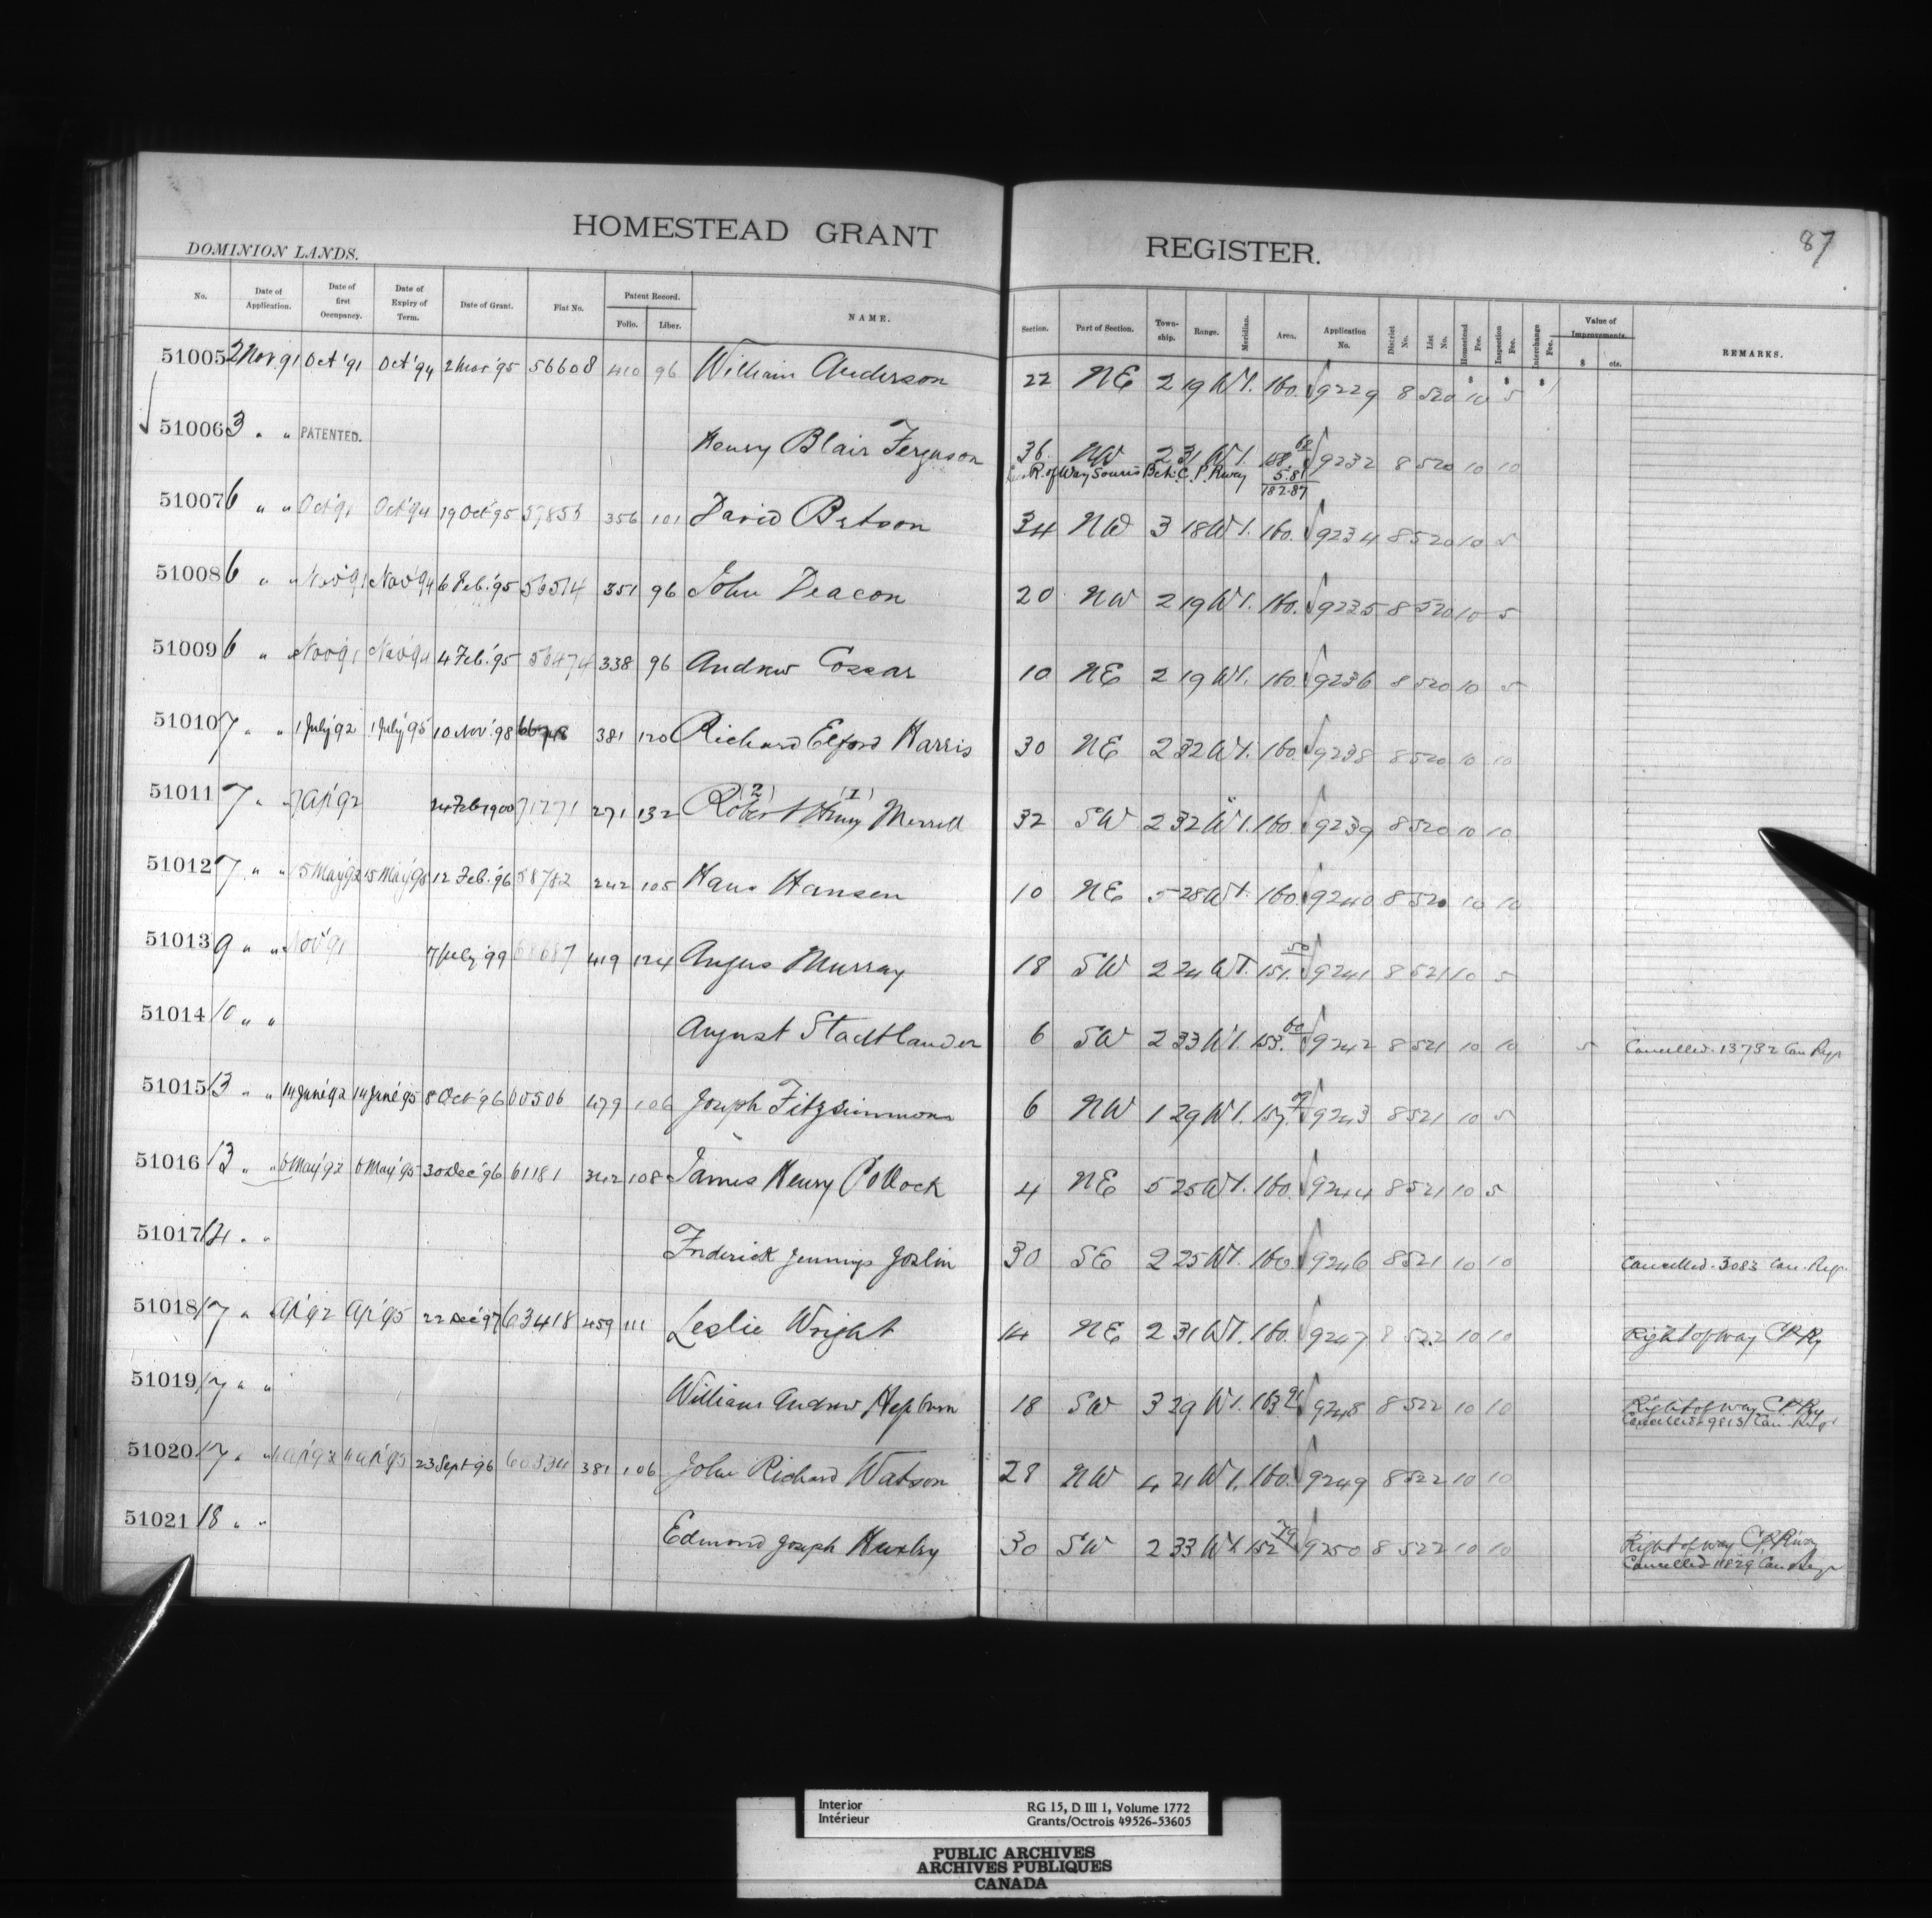 HOMESTEAD GRANT REGISTER. 87
DOMINION LANDS.
No. Date of Application. Date of first Occupancy. Date of Expiry of Term. Date of Grant. Fiat No. Patent Record. Folio. Liber. NAME. Section. Part of Section. Town-ship. Range. Meridian. Area. Application No. District No. List No. Homestead Fee. Inspection Fee. Interchange Fee. Value of Improvements. $ cts. REMARKS.
51005 2 Nov. 91 Oct '91 Oct '94 2 Mar '95 56608 410 96 William Anderson 22 NE 2 19 W1. 160. 9229 8 520 10 5
51006 3 " " PATENTED. Henry Blair Ferguson 36 NW 2 31 W1. 158.68 9232 8 520 10 10
R. of Way Souris Bch. C. P. Rway 5.81
152.87
51007 6 " " Oct '91 Oct '94 19 Oct '95 57856 356 101 David Betson 34 NW 3 18 W1. 160. 9234 8 520 10 5
51008 6 " " Nov '91 Nov '94 6 Feb. '95 56514 351 96 John Deacon 20 NW 2 19 W1. 160. 9235 8 520 10 5
51009 6 " " Nov '91 Nov '94 4 Feb. '95 56474 338 96 Andrew Cossar 10 NE 2 19 W1. 160. 9236 8 520 10 5
51010 7 " " 1 July '92 1 July '95 10 Nov. '98 381 120 Richard Elford Harris 30 NE 2 32 W1. 160. 9238 8 520 10 10
51011 7 " " 7 Ap '92 24 Feb 1900 71271 271 132 Robert (2) Henry (1) Merrell 32 SW 2 32 W1. 160 9239 8 520 10 10
51012 7 " " 15 May '92 15 May '95 12 Feb. '96 58782 242 105 Hans Hansen 10 NE 5 28 W1. 160. 9240 8 520 10 10
51013 9 " " Nov '91 7 July '99 68687 419 124 Angus Murray 18 SW 2 24 W1. 151.50 9241 8 521 10 5
51014 10 " " August Stadtlander 6 SW 2 33 W1. 153.60 9242 8 521 10 10 5 Cancelled. 13732 Can Regr
51015 13 " " 14 June '92 14 June '95 8 Oct '96 60506 479 106 Joseph Fitzsimmons 6 NW 1 29 W1. 157. 9243 8 521 10 5
51016 13 " " 6 May '92 6 May '95 30 Dec '96 61181 342 108 James Henry Pollock 4 NE 5 25 W1. 160. 9244 8 521 10 5
51017 14 " " Frederick Jennings Joslin 30 SE 2 25 W1. 160. 9246 8 521 10 10 Cancelled. 3083 Can. Reg.
51018 17 " Ap '92 Ap '95 22 Dec '97 63418 459 111 Leslie Wright 14 NE 2 31 W1. 160. 9247 8 522 10 10 Right of way C P Ry
51019 17 " " William Andrew Hepburn 18 SW 3 29 W1. 163. 9248 8 522 10 10 Right of way C P Ry
Cancelled 9813 Can. Regr
51020 17 " " 11 Ap '92 11 Ap '95 23 Sept '96 60334 381 106 John Richard Watson 28 NW 4 21 W1. 160. 9249 8 522 10 10
51021 18 " " Edmond Joseph Huxley 30 SW 2 33 W1. 152.79 9250 8 522 10 10 Right of way C P Rway
Cancelled 11829 Can Regr
Interior RG 15, D III 1, Volume 1772
Intérieur Grants/Octrois 49526-53605
PUBLIC ARCHIVES
ARCHIVES PUBLIQUES
CANADA